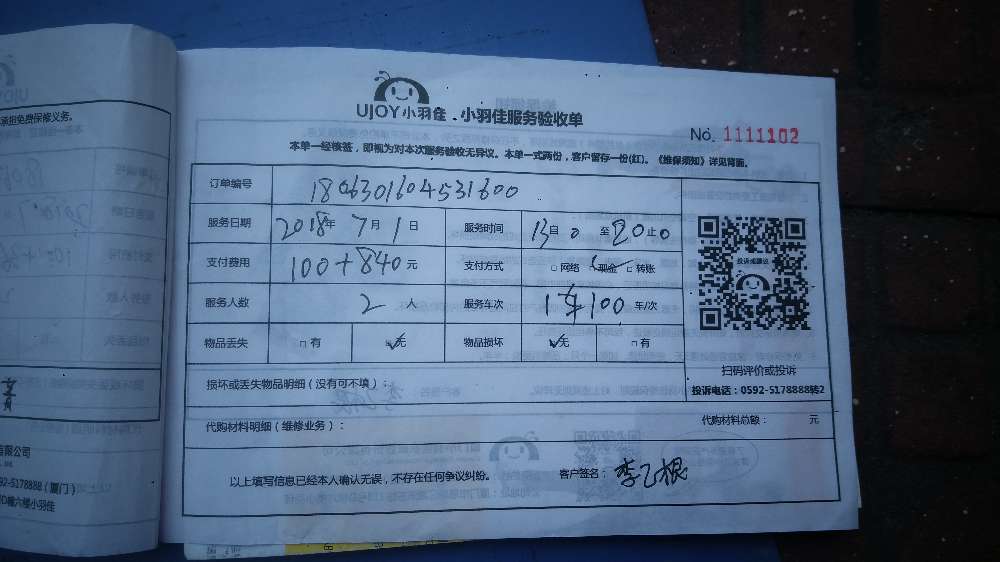 UJOY小羽佳 . 小羽佳服务验收单
No. 1111102
本单一经核签，即视为对本次服务验收无异议。本单一式两份，客户留存一份(红)。《维保须知》详见背面。
订单编号 1806301604531600
服务日期 2018年 7月 1日 服务时间 13自0 至20止0
支付费用 100+840元 支付方式 □网络 □现金 □转账
服务人数 2人 服务车次 1车100 车/次
物品丢失 □有 □无 物品损坏 □无 □有
投诉或建议
扫码评价或投诉
投诉电话：0592-5178888转2
损坏或丢失物品明细（没有可不填）：
代购材料明细（维修业务）： 代购材料总额： 元
以上填写信息已经本人确认无误，不存在任何争议纠纷。 客户签名：李乙根
承担免费保修义务。
有限公司
92-5178888（厦门）
D幢六楼小羽佳